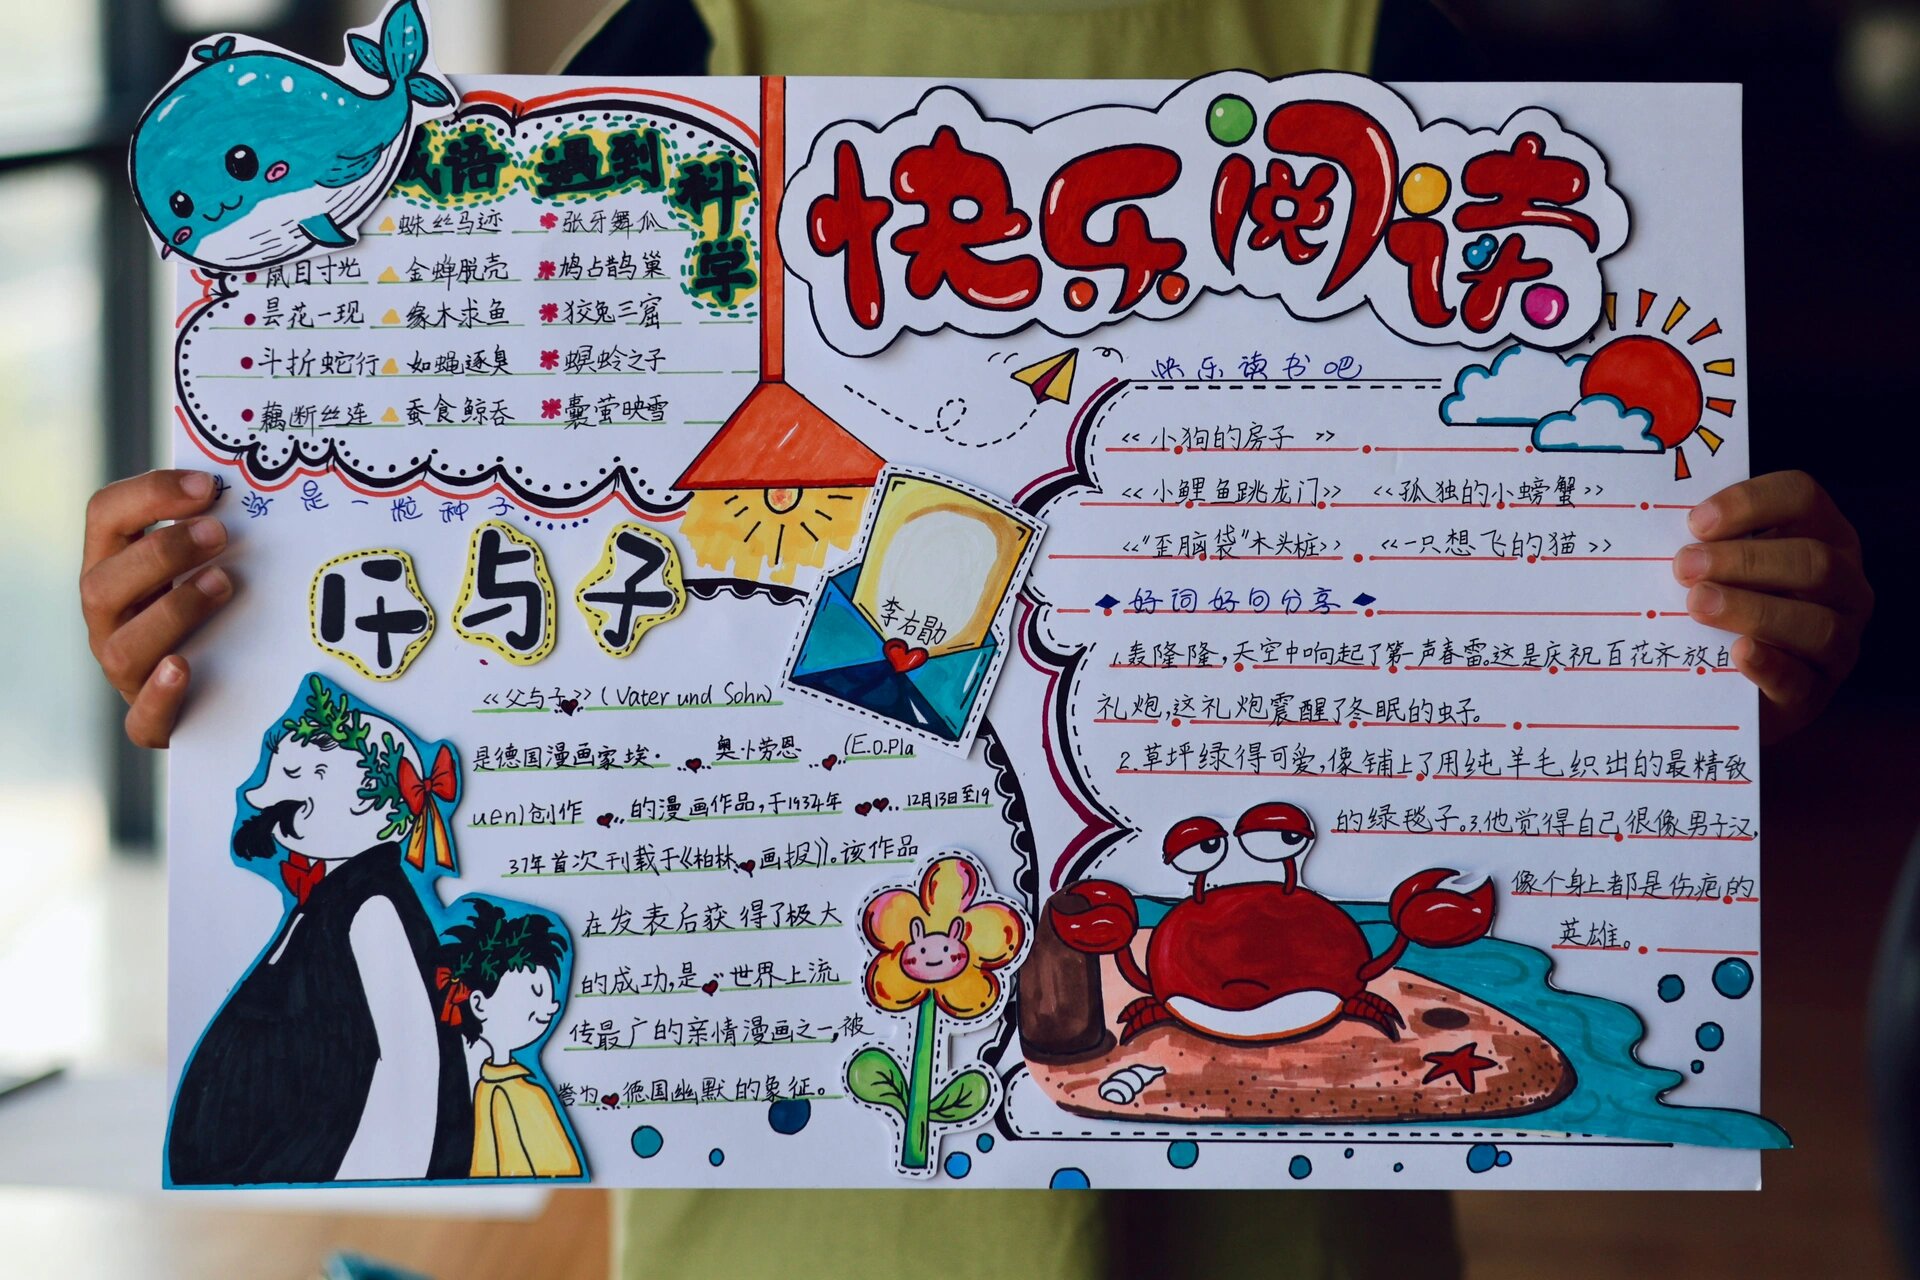 快乐阅读
成语遇到科学
蛛丝马迹 张牙舞爪
鼠目寸光 金蝉脱壳 鸠占鹊巢
昙花一现 缘木求鱼 狡兔三窟
斗折蛇行 如蝇逐臭 螟蛉之子
藕断丝连 蚕食鲸吞 囊萤映雪
是一粒种子
与子
李右勋
《父与子》(Vater und Sohn)
是德国漫画家埃· 奥·卜劳恩 (E.O.Pla
uen)创作 的漫画作品,于1934年 12月13日至19
37年首次刊载于《柏林 画报》。该作品
在发表后获得了极大
的成功,是 世界上流
传最广的亲情漫画之一,被
誉为 德国幽默的象征。
快乐读书吧
《小狗的房子》
《小鲤鱼跳龙门》 《孤独的小螃蟹》
《"歪脑袋"木头桩》 《一只想飞的猫》
好词好句分享
1.轰隆隆,天空中响起了第一声春雷。这是庆祝百花齐放的
礼炮,这礼炮震醒了冬眠的虫子。
2.草坪绿得可爱,像铺上了用纯羊毛织出的最精致
的绿毯子。3.他觉得自己很像男子汉,
像个身上都是伤疤的
英雄。